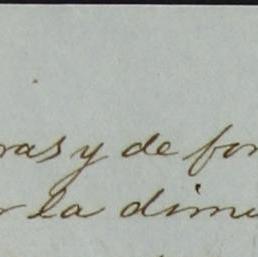 ras y de for
r la dime